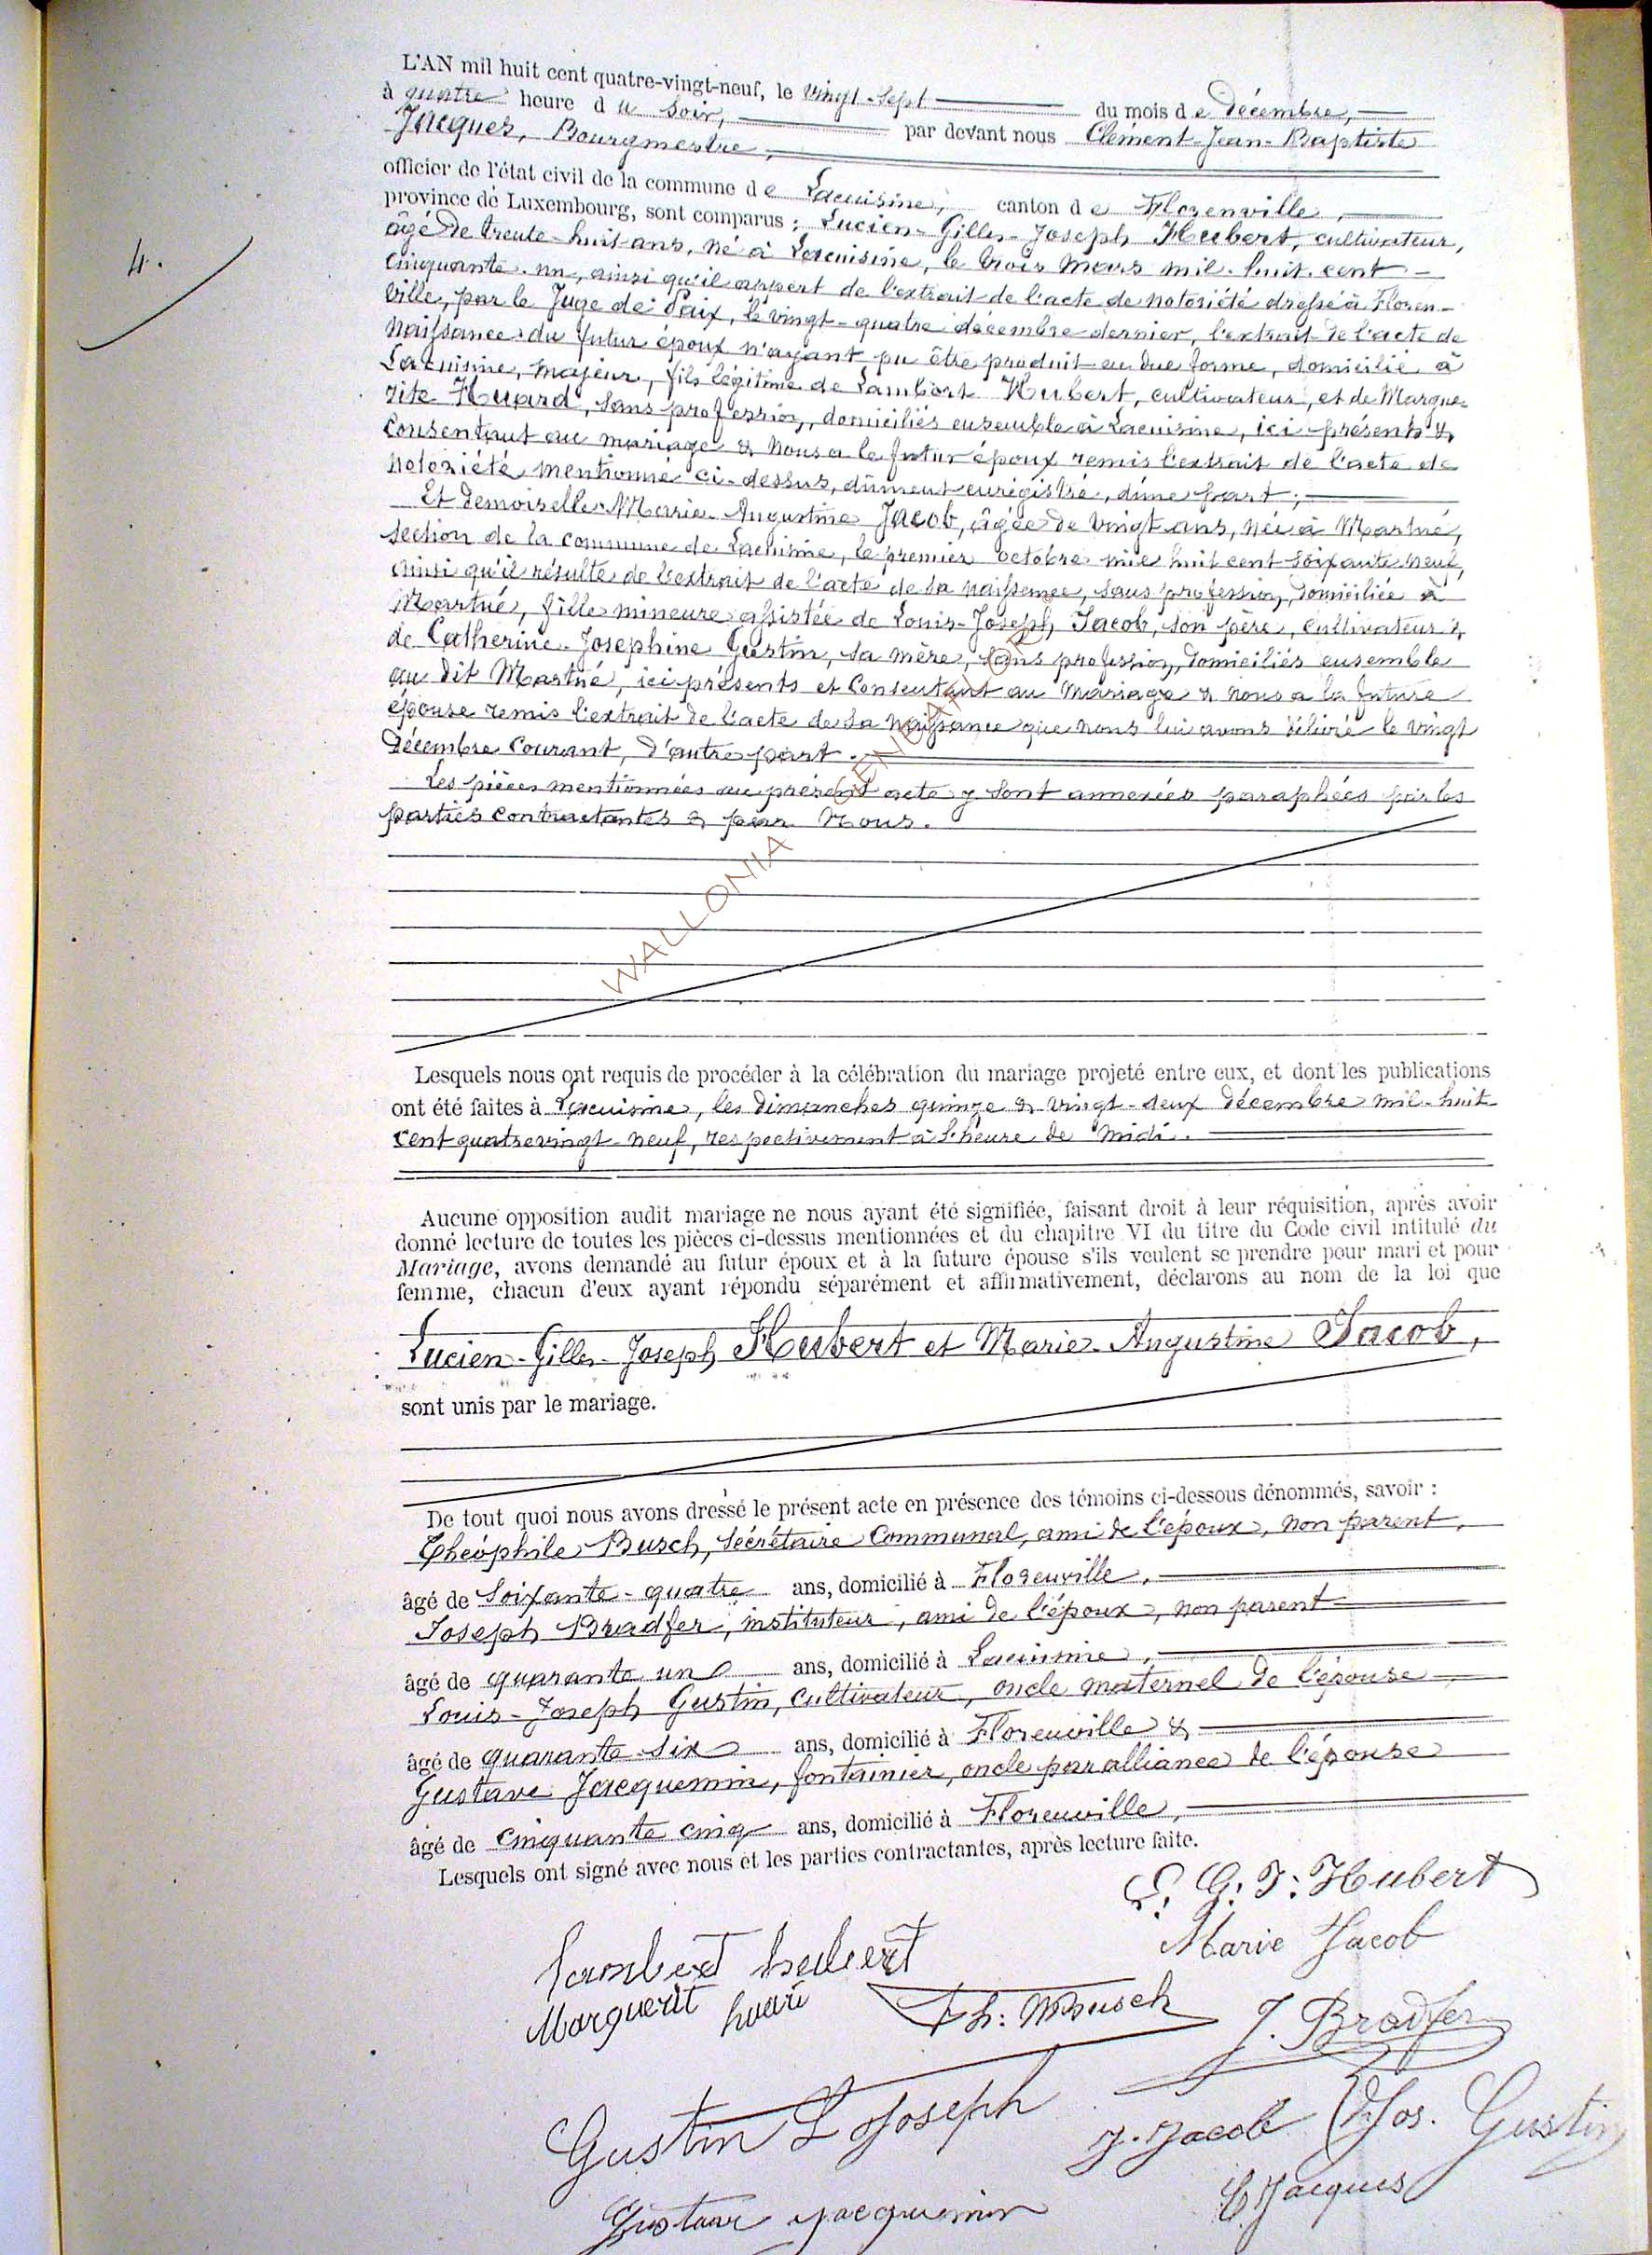 4.
L'AN mil huit cent quatre-vingt-neuf, le vingt-sept du mois de Décembre,
à quatre heure du soir, par devant nous Clément-Jean-Baptiste
Jacques, Bourgmestre,
officier de l'état civil de la commune de Lacuisine, canton de Florenville,
province de Luxembourg, sont comparus : Lucien-Gilles-Joseph Hubert, cultivateur,
âgé de trente-huit ans, né à Lacuisine, le trois mars mil-huit-cent-
cinquante-un, ainsi qu'il appert de l'extrait de l'acte de notoriété dressé à Floren-
ville, par le Juge de Paix, le vingt-quatre décembre dernier, l'extrait de l'acte de
naissance du futur époux n'ayant pu être produit en due forme, domicilié à
Lacuisine, majeur, fils légitime de Lambert Hubert, cultivateur, et de Margue-
rite Huard, sans profession, domiciliés ensemble à Lacuisine, ici présents &
consentant au mariage & nous a le futur époux remis l'extrait de l'acte de
notoriété mentionné ci-dessus, dûment enregistré, d'une part ;
Et demoiselle Marie-Augustine Jacob, âgée de vingt ans, née à Martué,
section de la commune de Lacuisine, le premier octobre mil huit cent soixante neuf,
ainsi qu'il résulte de l'extrait de l'acte de sa naissance, sans profession, domiciliée à
Martué, fille mineure assistée de Louis-Joseph Jacob, son père, cultivateur &
de Catherine-Josephine Gustin, sa mère, sans profession, domiciliés ensemble
au dit Martué, ici présents et consentant au mariage & nous a la future
épouse remis l'extrait de l'acte de sa naissance que nous lui avons délivré le vingt
décembre courant, d'autre part.
Les pièces mentionnées au présent acte y sont annexées paraphées par les
parties contractantes & par Nous.
WALLONIA GENEAFLOR
Lesquels nous ont requis de procéder à la célébration du mariage projeté entre eux, et dont les publications
ont été faites à Lacuisine, les dimanches quinze & vingt-deux décembre mil-huit-
cent quatrevingt-neuf, respectivement à l'heure de midi.
Aucune opposition audit mariage ne nous ayant été signifiée, faisant droit à leur réquisition, après avoir
donné lecture de toutes les pièces ci-dessus mentionnées et du chapitre VI du titre du Code civil intitulé du
Mariage, avons demandé au futur époux et à la future épouse s'ils veulent se prendre pour mari et pour
femme, chacun d'eux ayant répondu séparément et affirmativement, déclarons au nom de la loi que
Lucien-Gilles-Joseph Hubert et Marie-Augustine Jacob,
sont unis par le mariage.
De tout quoi nous avons dressé le présent acte en présence des témoins ci-dessous dénommés, savoir :
Théophile Busch, sécrétaire communal, ami de l'époux, non parent,
âgé de soixante-quatre ans, domicilié à Florenville,
Joseph Bradfer, instituteur, ami de l'époux, non parent
âgé de quarante un ans, domicilié à Lacuisine,
Louis-Joseph Gustin, cultivateur, oncle maternel de l'épouse
âgé de quarante-six ans, domicilié à Florenville &
Gustave Jacquemin, fontainier, oncle par alliance de l'épouse
âgé de cinquante cinq ans, domicilié à Florenville,
Lesquels ont signé avec nous et les parties contractantes, après lecture faite.
L. G. J. Hubert
Marie Jacob
Lambert hubert
Marguerit huart
Th: Busch
J. Bradfer
Gustin L Joseph
J. Jacob
Jos. Gustin
Gustave jacquemin
C Jacques